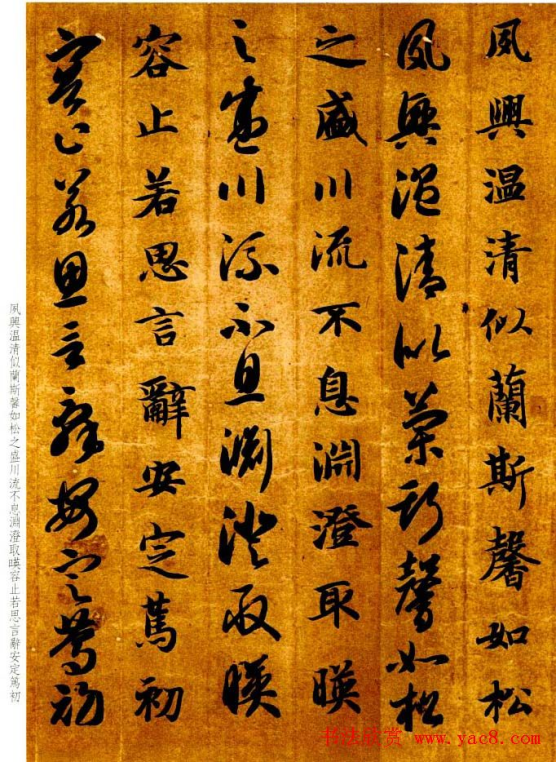 夙興温清似蘭斯馨如松
夙興温清似蘭斯馨如松
之盛川流不息淵澄取暎
之盛川流不息淵澄取暎
容止若思言辭安定篤初
容止若思言辭安定篤初
夙興温清似蘭斯馨如松之盛川流不息淵澄取暎容止若思言辭安定篤初
书法欣赏 www.yac8.com